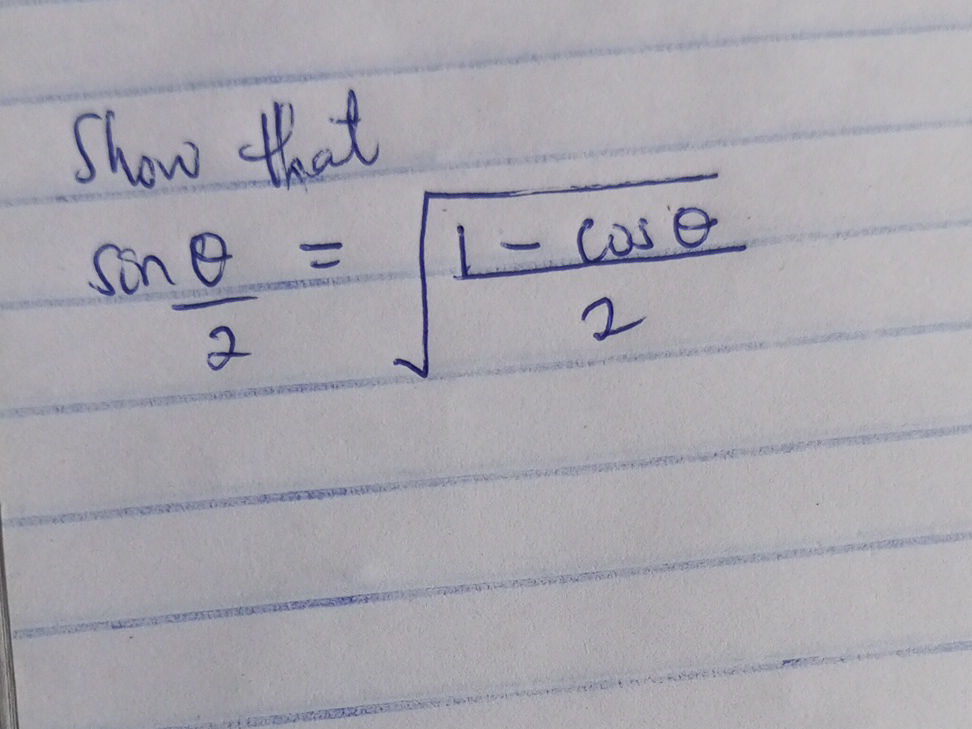 Show that
sin θ/2 = √((1 - cos θ)/2)